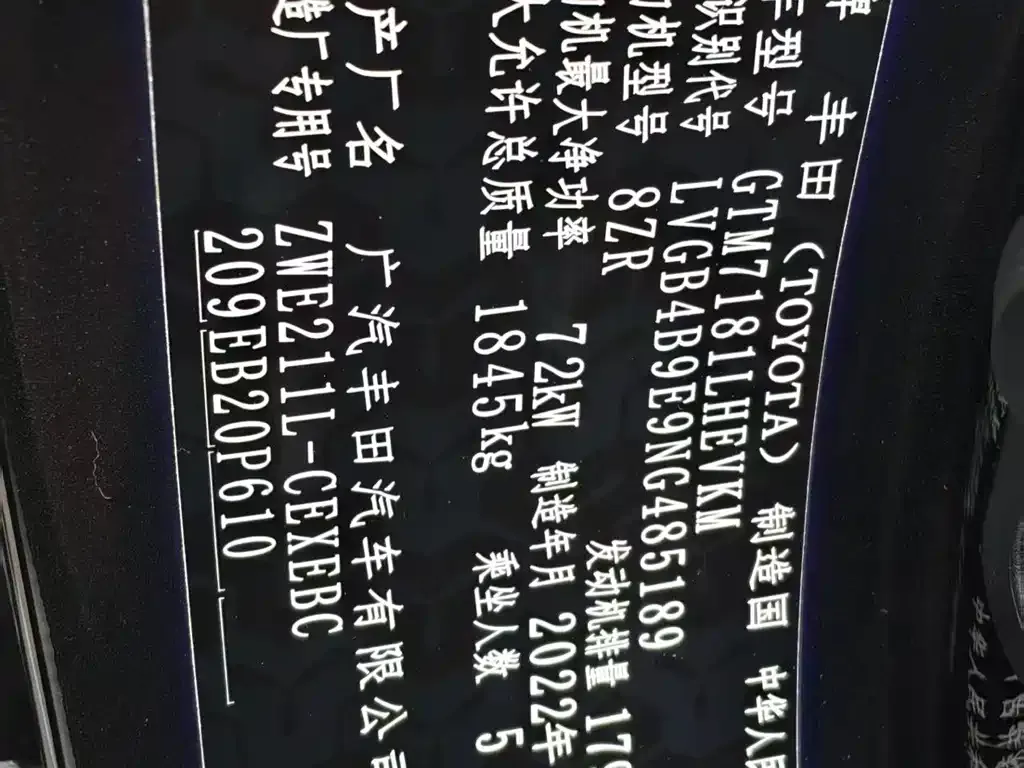 丰田 (TOYOTA) 制造国 中华人民
型号 GTM7181LHEVKM
识别代号 LVGB4B9E9NG485189
机型号 8ZR 发动机排量 179
机最大净功率 72kW 制造年月 2022年
大允许总质量 1845kg 乘坐人数 5
产厂名 广汽丰田汽车有限公司
造厂专用号 ZWE211L-CEXEBC
209EB20P610